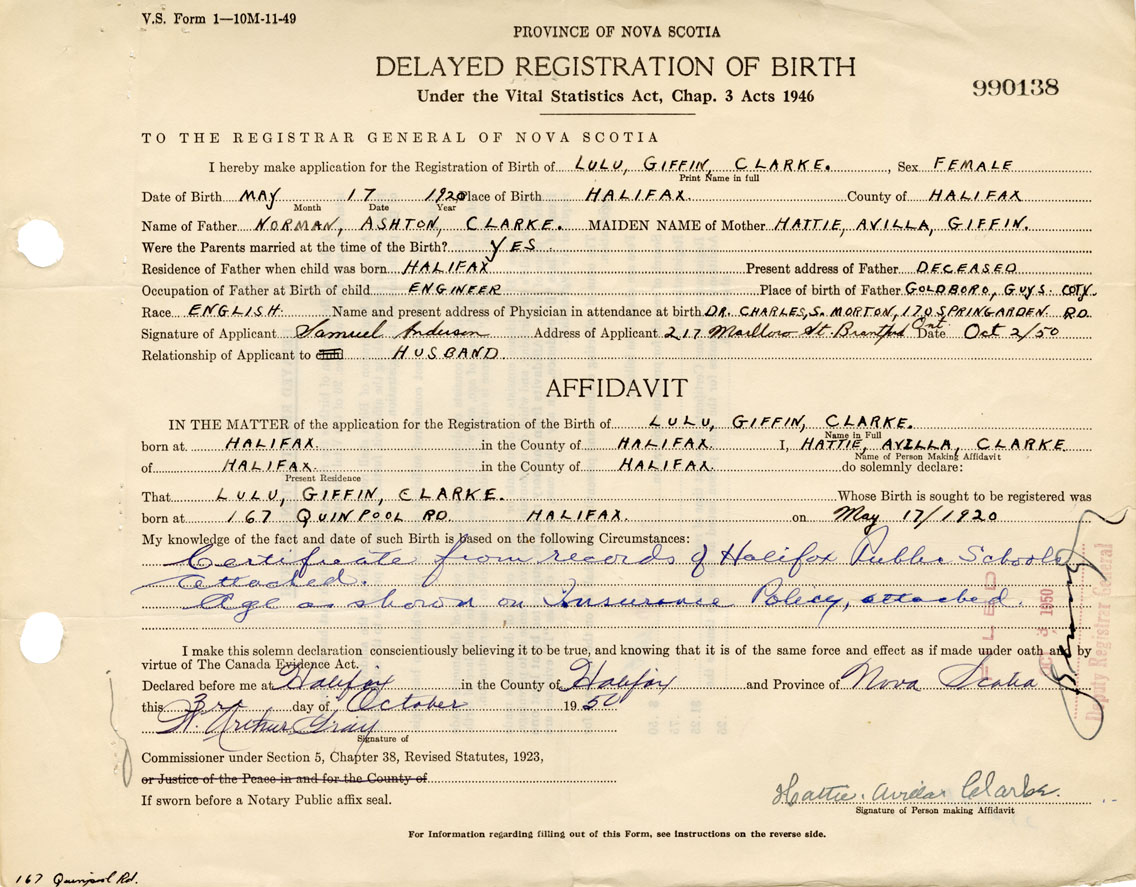 V.S. Form 1—10M-11-49
PROVINCE OF NOVA SCOTIA
DELAYED REGISTRATION OF BIRTH
990138
Under the Vital Statistics Act, Chap. 3 Acts 1946
TO THE REGISTRAR GENERAL OF NOVA SCOTIA
I hereby make application for the Registration of Birth of LULU, GIFFIN, CLARKE. , Sex FEMALE
Print Name in full
Date of Birth MAY 17 1920 Place of Birth HALIFAX. County of HALIFAX
Month Date Year
Name of Father NORMAN, ASHTON, CLARKE. MAIDEN NAME of Mother HATTIE, AVILLA, GIFFIN.
Were the Parents married at the time of the Birth? YES
Residence of Father when child was born HALIFAX Present address of Father DECEASED
Occupation of Father at Birth of child ENGINEER Place of birth of Father GOLDBORO, GUYS. COTY.
Race ENGLISH. Name and present address of Physician in attendance at birth DR. CHARLES, S. MORTON, 170 SPRINGARDEN RD.
Signature of Applicant Samuel Anderson Address of Applicant 217 Marlboro St. Brantford Ont. Date Oct 2/50
Relationship of Applicant to HUSBAND.
AFFIDAVIT
IN THE MATTER of the application for the Registration of the Birth of LULU, GIFFIN, CLARKE.
Name in Full
born at HALIFAX. in the County of HALIFAX. I, HATTIE, AVILLA, CLARKE
Name of Person Making Affidavit
of HALIFAX. in the County of HALIFAX. do solemnly declare:
Present Residence
That LULU, GIFFIN, CLARKE. Whose Birth is sought to be registered was
born at 167 QUINPOOL RD. HALIFAX. on May 17/1920
My knowledge of the fact and date of such Birth is based on the following Circumstances:
Certificate from records of Halifax Public Schools
attached.
Age as shown on Insurance Policy, attached.
I make this solemn declaration conscientiously believing it to be true, and knowing that it is of the same force and effect as if made under oath and by
virtue of The Canada Evidence Act.
Declared before me at Halifax in the County of Halifax and Province of Nova Scotia
this 3rd day of October 1950
W. Arthur Gray
Signature of
Commissioner under Section 5, Chapter 38, Revised Statutes, 1923,
or Justice of the Peace in and for the County of
If sworn before a Notary Public affix seal.
Hattie. Avilla Clarke.
Signature of Person making Affidavit
For Information regarding filling out of this Form, see instructions on the reverse side.
167 Quinpool Rd.
FILED
OCT 3 1950
Deputy Registrar General